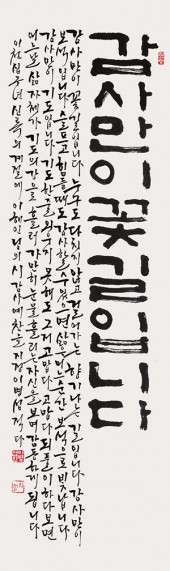 감사만이 꽃길입니다
감사만이 꽃길입니다 누구도 다치지 않고 걸어가는 향기나는 길입니다 감사만이
보석입니다 슬프고 힘들때도 감사할 수 있으면 삶은 어느순간 보석으로 빛납니다
감사만이 기도입니다 기도 한줄 외우지 못해도 그저 고맙다 고맙다 되풀이하다 보면
어느날 삶 자체가 기도의 강으로 흘러 가만히 눈물 흘리는 자신을 보며 감동하게 됩니다
이천십구년 신록의 계절에 이해인님의 시 감사예찬을 지강 이병설 적다